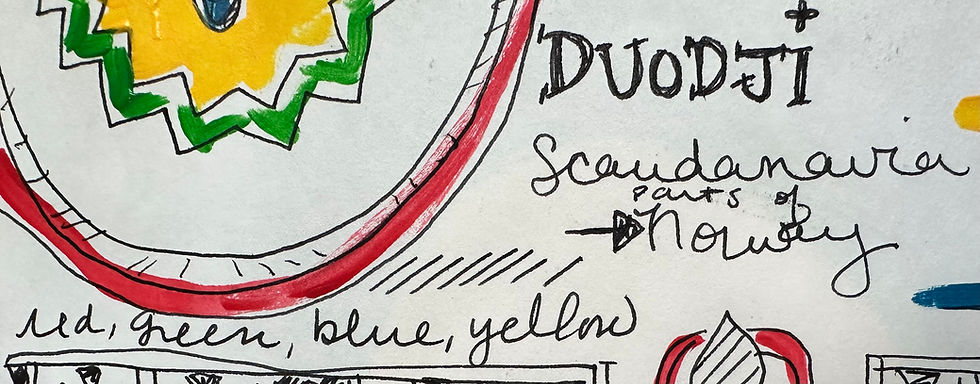 DUODJI
Scandanavia
parts of
Norway
red, green, blue, yellow